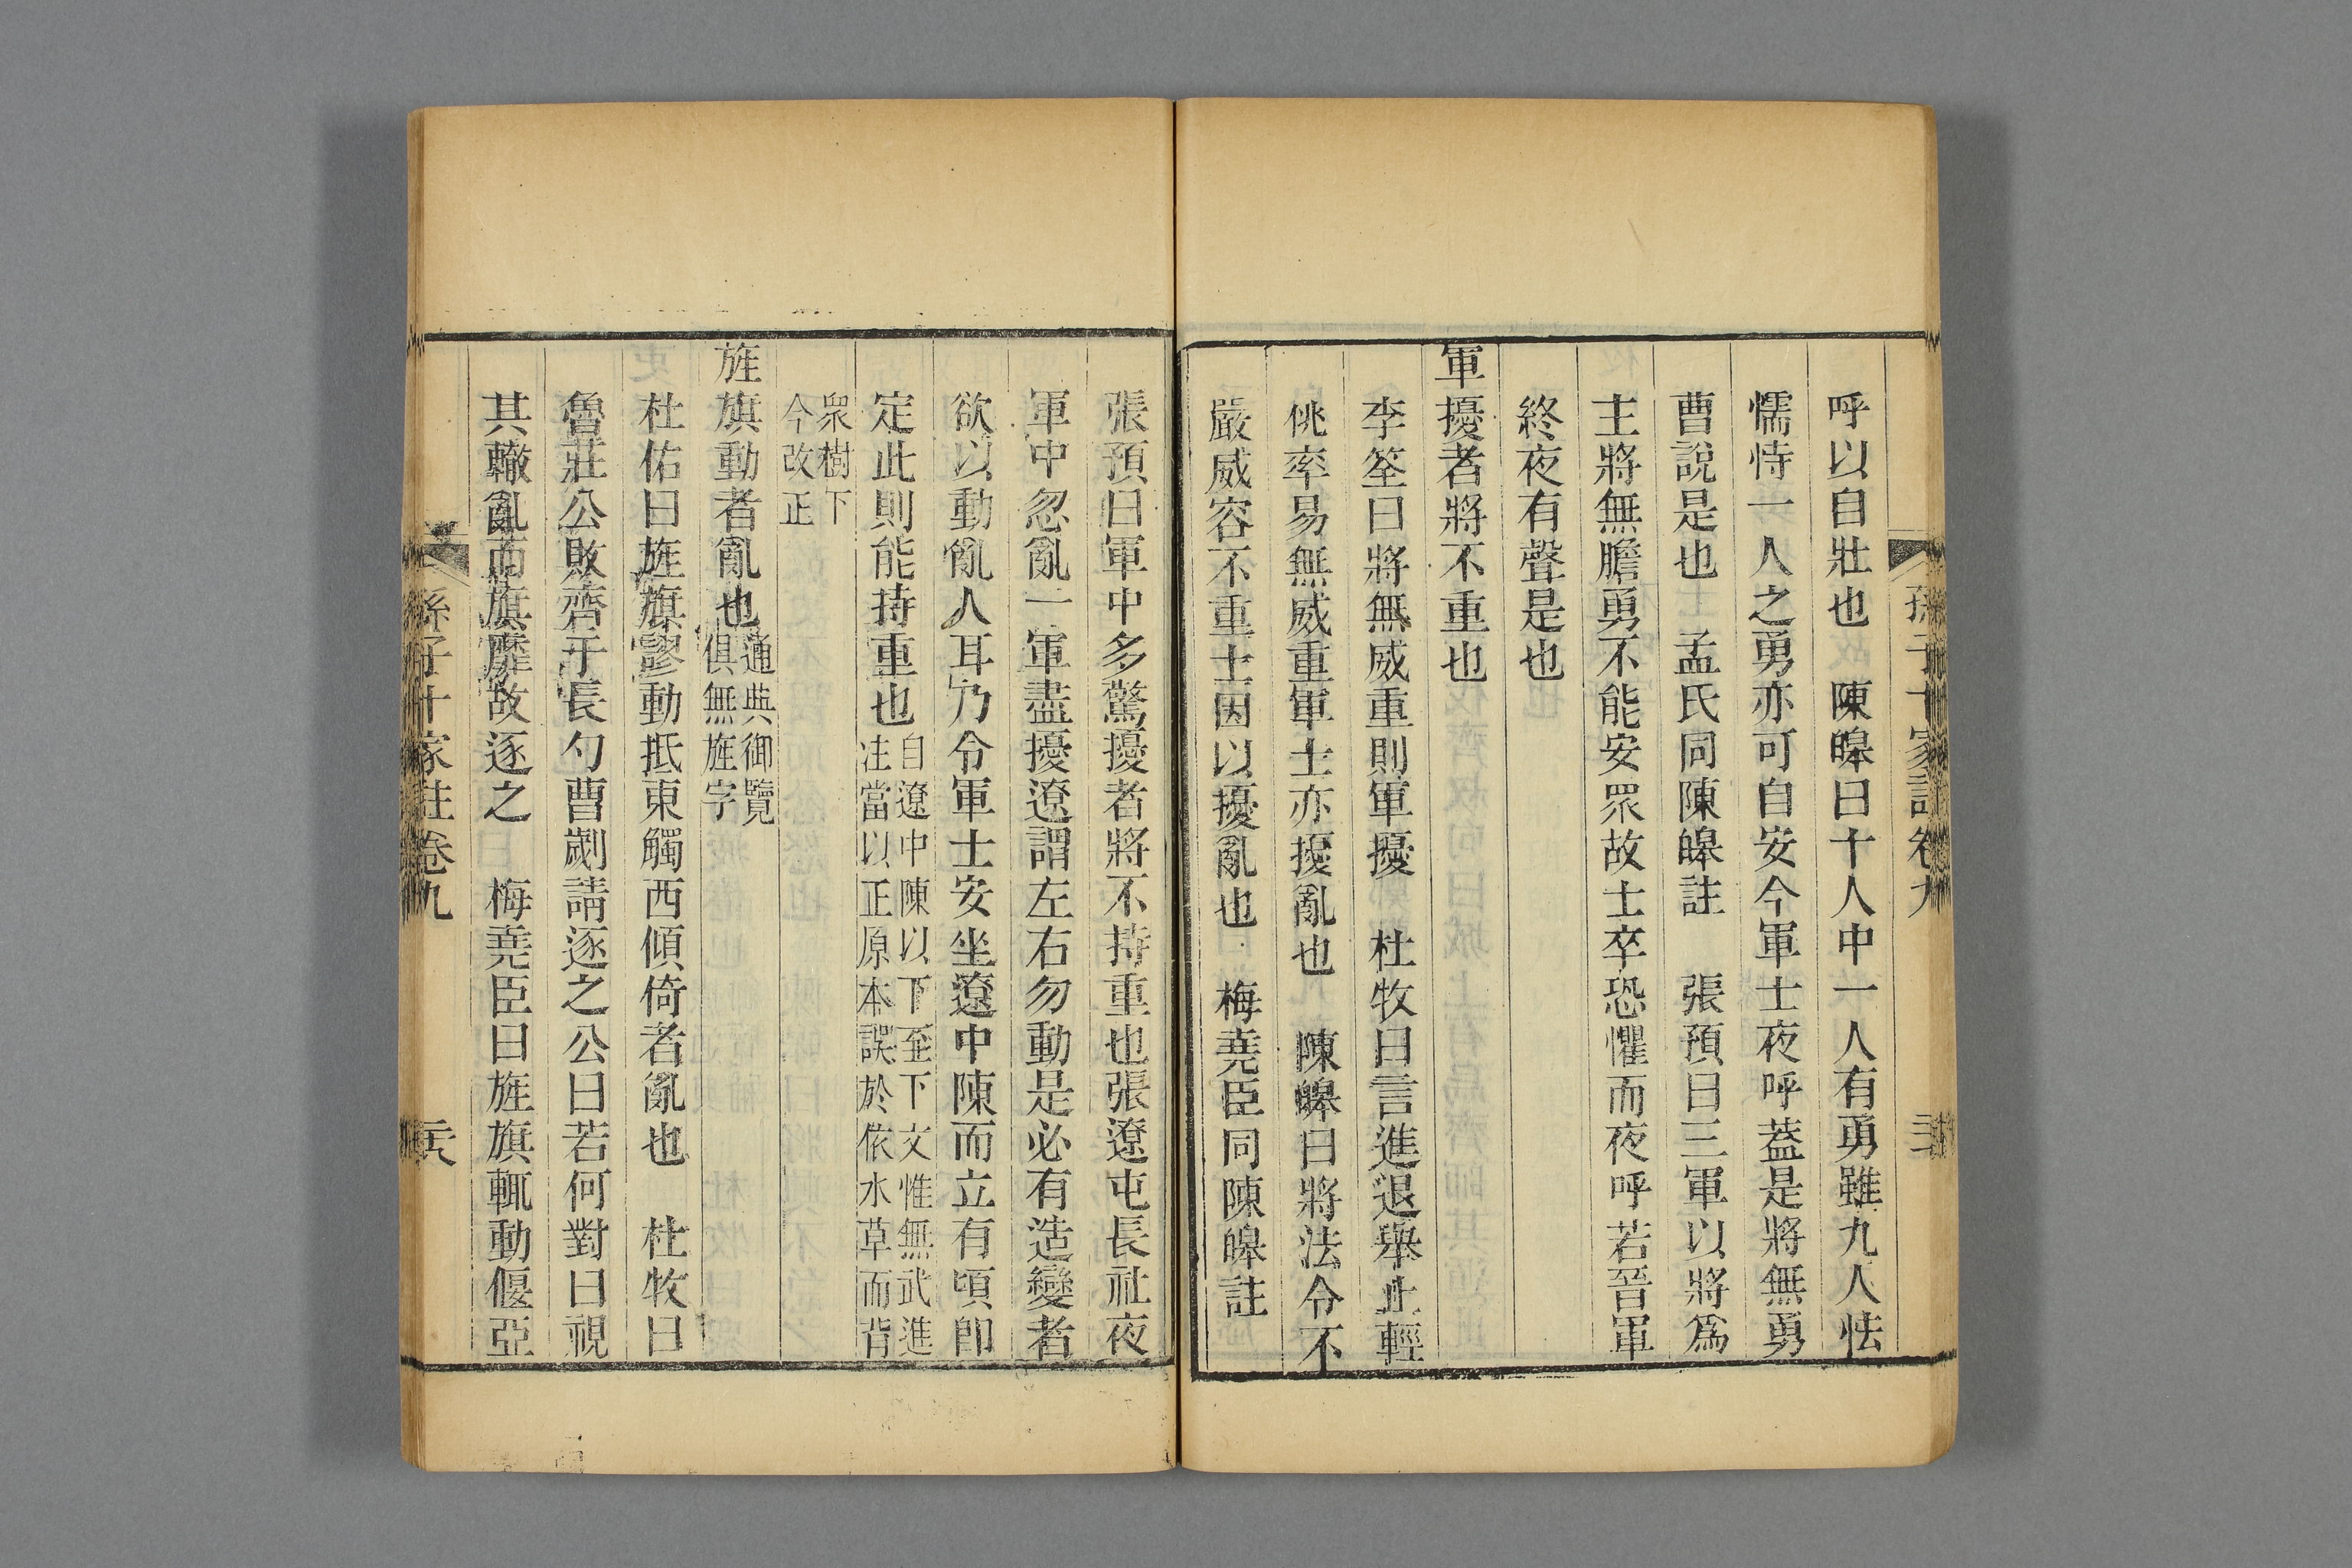 孫子十家註卷九
呼以自壯也　陳皞曰十人中一人有勇雖九人怯
懦恃一人之勇亦可自安今軍士夜呼葢是將無勇
曹說是也　孟氏同陳皞註　張預曰三軍以將爲
主將無膽勇不能安眾故士卒恐懼而夜呼若晉軍
終夜有聲是也
軍擾者將不重也
李筌曰將無威重則軍擾　杜牧曰言進退舉止輕
佻率易無威重軍士亦擾亂也　陳皞曰將法令不
嚴威容不重士因以擾亂也　梅堯臣同陳皞註
張預曰軍中多驚擾者將不持重也張遼屯長社夜
軍中忽亂一軍盡擾遼謂左右勿動是必有造變者
欲以動亂人耳乃令軍士安坐遼中陳而立有頃卽
定此則能持重也自遼中陳以下至下文惟無武進
注當以正原本誤於依水草而背
眾樹下
今改正
旌旗動者亂也通典御覽
俱無旌字
杜佑曰旌旗謬動抵東觸西傾倚者亂也　杜牧曰
魯莊公敗齊于長勺曹劌請逐之公曰若何對曰視
其轍亂而旗靡故逐之　梅堯臣曰旌旗輒動偃亞
孫子十家註卷九